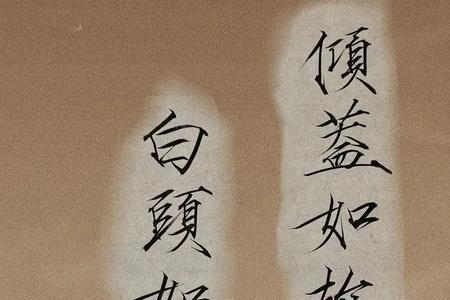 傾蓋如
白頭如